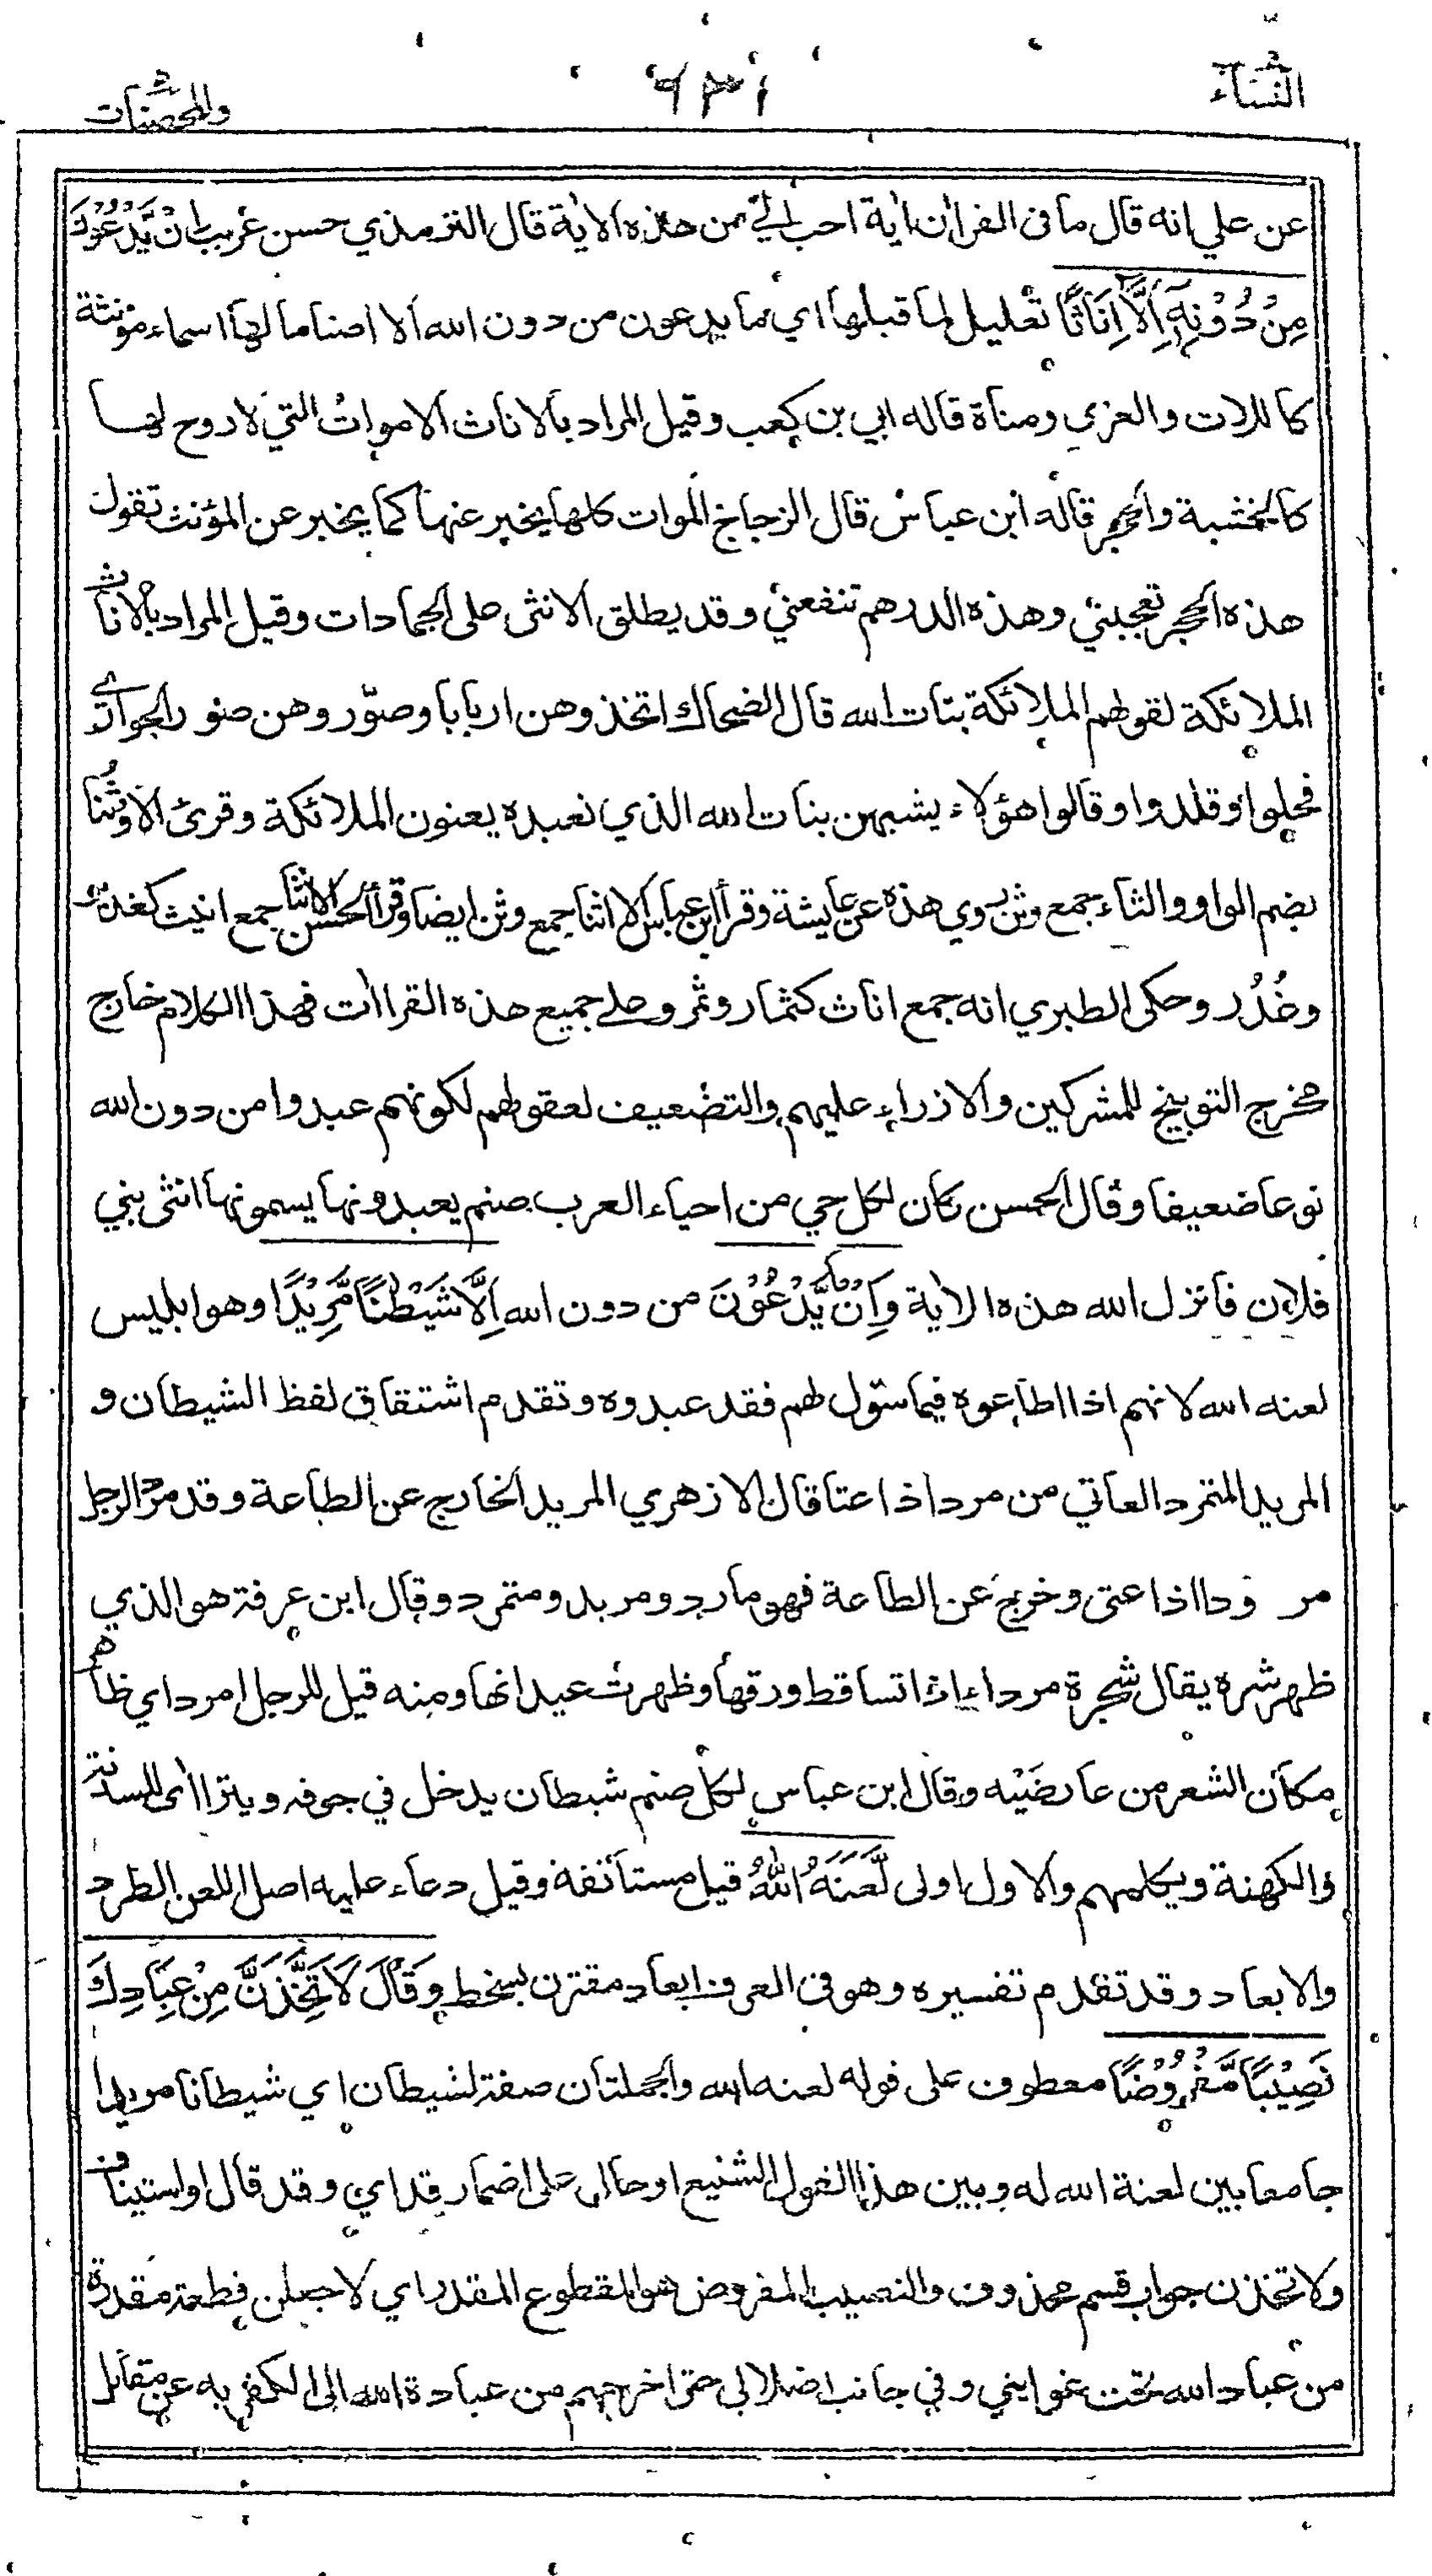 النساء
٦٣١
والمحصنات
عن علي انه قال ما في القرآن آية احب الي من هذه الآية قال الترمذي حسن غريب اِنْ يَّدْعُوْنَ
مِنْ دُوْنِهٖٓ اِلَّآ اِنَاثًا تعليل لما قبلها اي ما يدعون من دون الله الا اصناما لها اسماء مؤنثة
كاللات والعزى ومناة قاله ابي بن كعب وقيل المراد بالاناث الاموات التي لا روح لها
كالخشبة والحجر قاله ابن عباس قال الزجاج الموات كلها يخبر عنها كما يخبر عن المؤنث تقول
هذه الحجر تعجبني وهذه الدرهم تنفعني وقد يطلق الانثى على الجمادات وقيل المراد بالاناث
الملائكة لقولهم الملائكة بنات الله قال الضحاك اتخذوهن اربابا وصوّروهن صور الجواري
فحلوا وقلدوا وقالوا هؤلاء يشبهن بنات الله الذي نعبده يعنون الملائكة وقرئ الا وُثُنا
بضم الواو والثاء جمع وثن روي هذه عن عايشة وقرأ ابن عباس الا اثنا جمع وثن ايضا وقرأ الحسن الا انثا جمع انيث كغدير
وغُدُر وحكى الطبري انه جمع اناث كثمار وثمر وعلى جميع هذه القراات فهذا الكلام خارج
مخرج التوبيخ للمشركين والازراء عليهم والتضعيف لعقولهم لكونهم عبدوا من دون الله
نوعا ضعيفا وقال الحسن كان لكل حي من احياء العرب صنم يعبدونها يسمونها انثى بني
فلان فانزل الله هذه الآية وَاِنْ يَّدْعُوْنَ من دون الله اِلَّا شَيْطٰنًا مَّرِيْدًا وهو ابليس
لعنه الله لانهم اذا اطاعوه فيما سوّل لهم فقد عبدوه وتقدم اشتقاق لفظ الشيطان و
المريد المتمرد العاتي من مرد اذا عتا قال الازهري المريد الخارج عن الطاعة وقد مرد الرجل
مرودا اذا عتى وخرج عن الطاعة فهو مارد ومريد ومتمرد وقال ابن عرفة هو الذي
ظهر شره يقال شجرة مرداء اذا تساقط ورقها وظهرت عيدانها ومنه قيل للرجل امرد اي ظاهر
مكان الشعر من عارضَيْه وقال ابن عباس لكل صنم شيطان يدخل في جوفه ويتراأى للسدنة
والكهنة ويكلمهم والاول اولى لَّعَنَهُ اللّٰهُ قيل مستأنفة وقيل دعاء عليه اصل اللعن الطرد
والابعاد وقد تقدم تفسيره وهو في العرف ابعاد مقترن بسخط وَقَالَ لَاَتَّخِذَنَّ مِنْ عِبَادِكَ
نَصِيْبًا مَّفْرُوْضًا معطوف على قوله لعنه الله والجملتان صفة لشيطان اي شيطانا مريدا
جامعا بين لعنة الله له وبين هذا القول الشنيع او حال على اضمار قد اي وقد قال او استيناف
ولاتخذن جواب قسم محذوف والنصيب المفروض هو المقطوع المقدر اي لاجعلن قطعة مقدرة
من عباد الله تحت غوايتي وفي جانب اضلالي حتى اخرجهم من عبادة الله الى الكفر به عن مقاتل